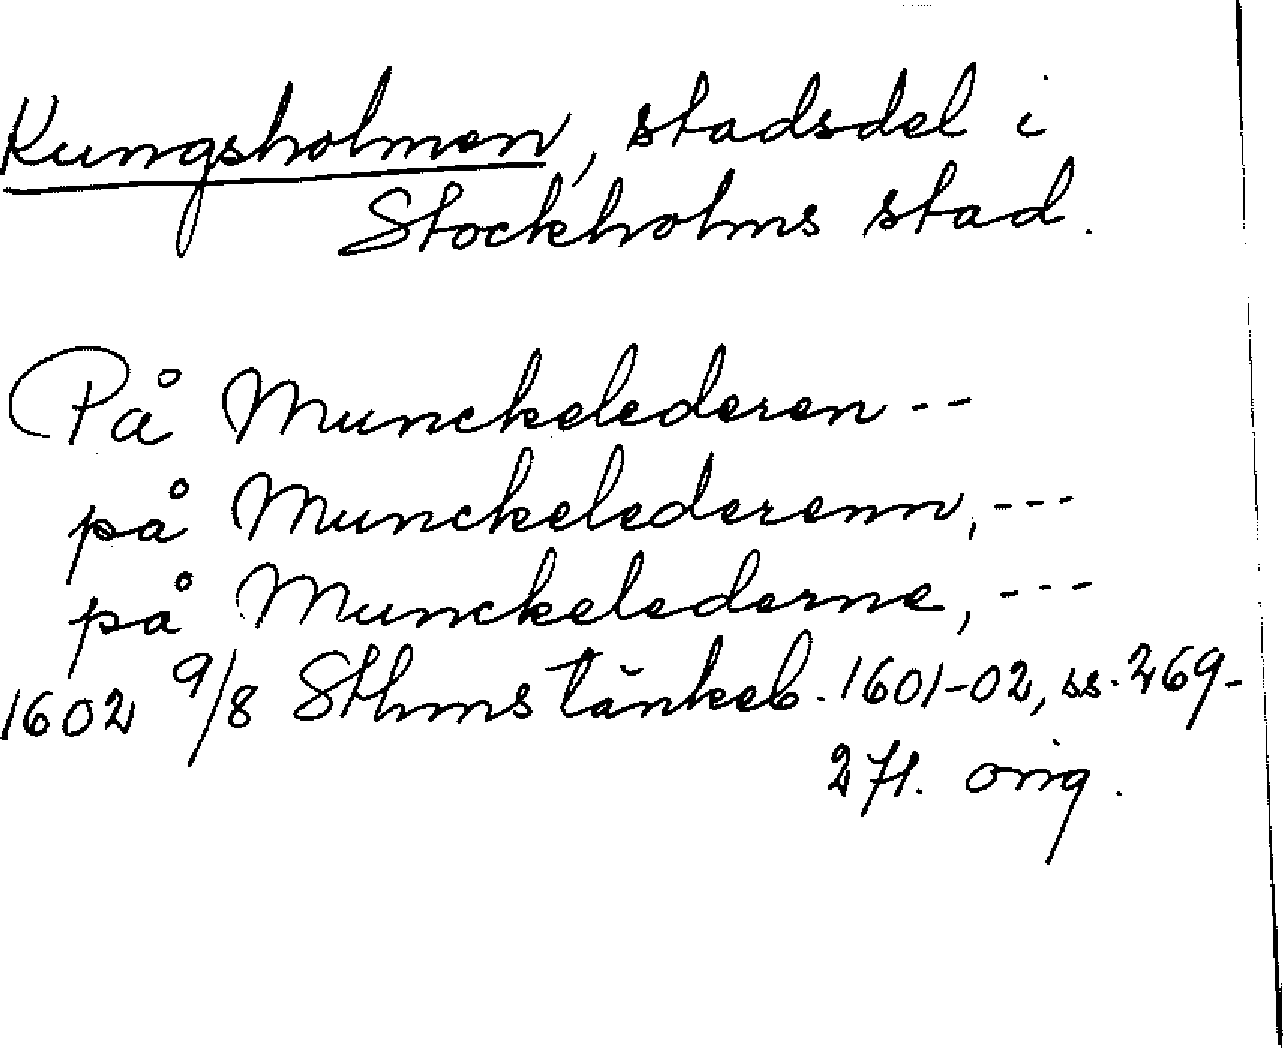 Kungsholmen, stadsdel i
Stockholms stad.
På Munckelederen --
på Munckelederenn, ---
på Munckelederne, ---
1602 9/8 Sthms tänkeb. 1601-02, ss. 269-
271. orig.